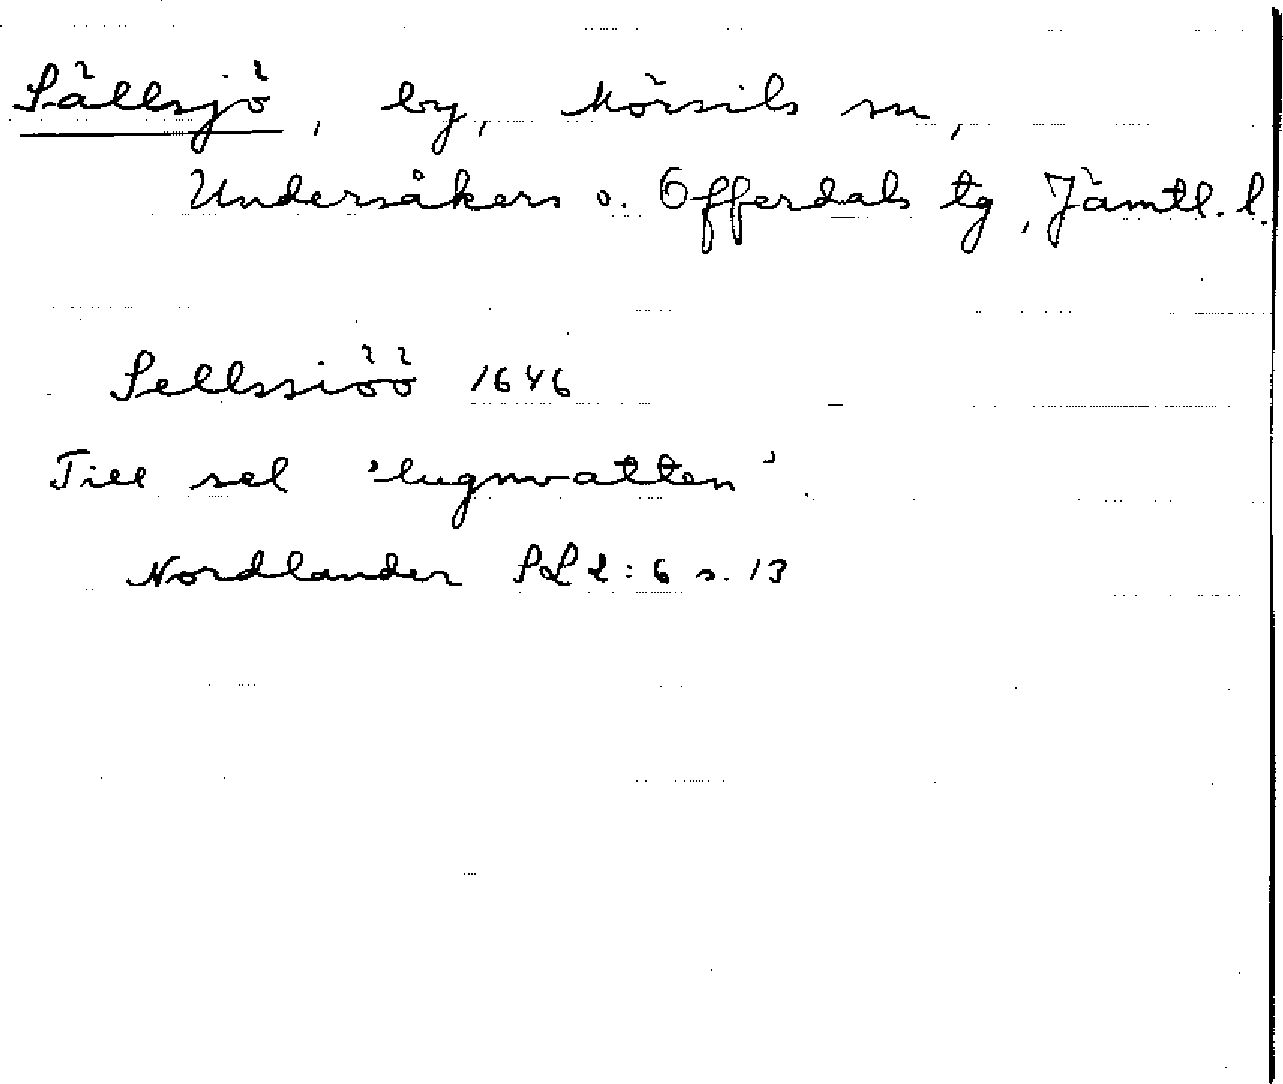 Sällsjö, by, Mörsils sn,
Undersåkers o. Offerdals tg, Jämtl. l.
Sellssiöö 1646
Till sel 'lugnvatten'.
Nordlander SL 2:6 s. 13